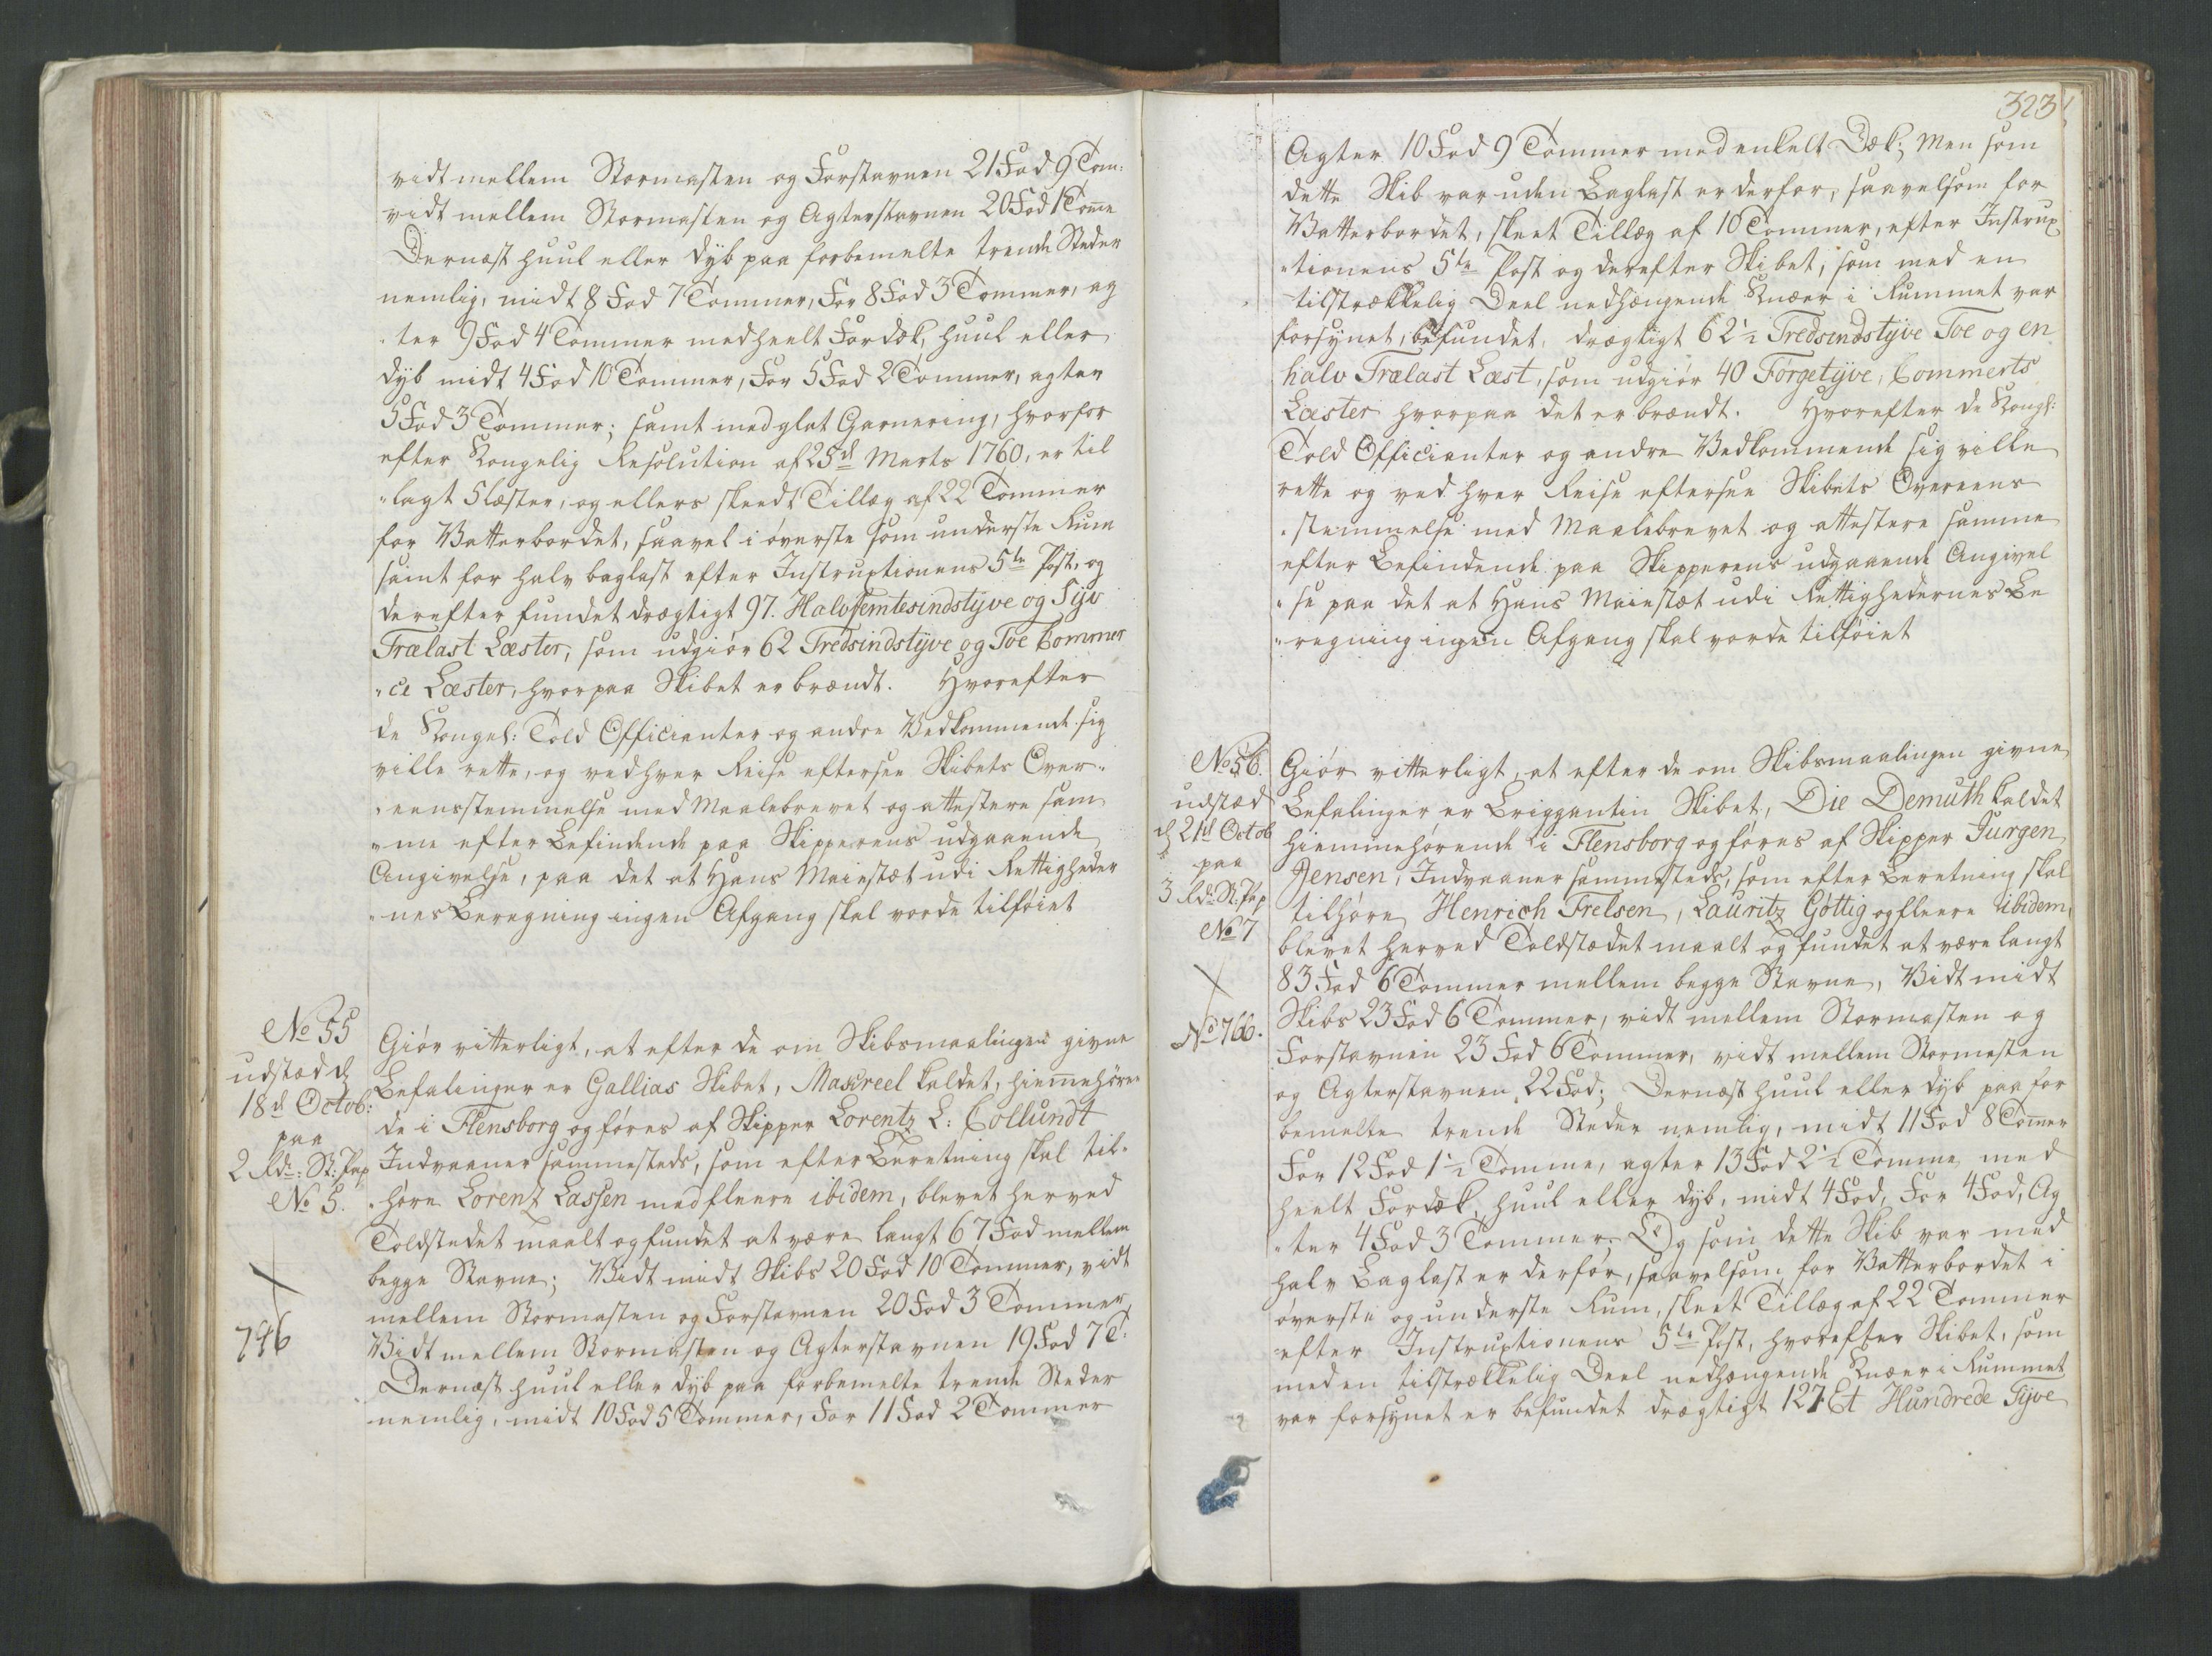 vidt mellem Stormasten og Forstavnen 21 Fod 9 Tom:
vidt mellem Stormasten og Agterstavnen 20 Fod 1 Tom̅e
Dernæst huul eller dyb paa forbemelte trende Steder
nemlig, midt 8 Fod 7 Tommer, For 8 Fod 3 Tommer, ag
"ter 9 Fod 4 Tommer med heelt Fordæk, huul eller
dyb midt 4 Fod 10 Tommer, For 5 Fod 2 Tommer, agter
5 Fod 3 Tommer; samt med glat Garnering, hvorfor
efter Kongelig Resolution af 25d Marts 1760, er til
"lagt 5 læster, og ellers skeedt Tillæg af 22 Tommer
for Vatterbordet, saavel i øverste som underste Rum
samt for halv baglast efter Instructionens 5te Post, og
derefter fundet drægtigt 97. Halvfemtesindstÿve og Sÿv
Trælast Læster, som udgiør 62 Tredsindstÿve og Toe Commer
"ce Læster, hvorpaa Skibet er brændt. Hvorefter
de Kongel: Told Officianter og andre Vedkommende sig
ville rette, og ved hver Reise eftersee Skibets Over-
"eensstemmelse med Maalebrevet og attestere sam
"me efter Befindende paa Skipperens udgaaende
Angivelse, paa det at Hans Maiestæt udi Rettigheder
"nes Beregning ingen Afgang skal vorde tilføiet
No 55
udstæd d
18d Octob:
paa
2 Rdr: St: Pap
No 5.
746
Giør vitterligt, at efter de om Skibsmaalingen givne
Befalinger er Gallias Skibet, Mascreel kaldet, hiem̅ehören
de i Flensborg og føres af Skipper Lorentz L: Collundt
Indvaaner sammesteds, som efter Beretning skal til-
"høre Lorentz Lassen med fleere ibidem, blevet herved
Toldstedet maalt og fundet at være langt 67 Fod mellem
begge Stavne; Vidt midt Skibs 20 Fod 10 Tommer, vidt
mellem Stormasten og Forstavnen 20 Fod 3 Tommer
Vidt mellem Stormasten og Agterstavnen 19 Fod 7 T:
Dernæst huul eller dyb paa forbemelte trende Steder
nemlig, midt 10 Fod 5 Tommer, For 11 Fod 2 Tommer
323
Agter 10 Fod 9 Tommer med enkelt Dæk; Men som
dette Skib var uden Baglast er derfor, saavelsom for
Vatterbordet, skeet Tillæg af 10 Tommer, efter Instruc
"tionens 5te Post og derefter Skibet, som med en
tilstrækkelig Deel nedhængende Knæer i Rummet var
forsynet, befundet, drægtigt 62½ Tredsindstÿve Toe og en
halv Trælast Læst, som udgiør 40 Förgetÿve, Commerts
Læster hvorpaa det er brændt. Hvorefter de Kongl:
Told Officianter og andre Vedkommende sig ville
rette og ved hver Reise eftersee Skibets Overeens
"stemmelse med Maalebrevet og attestere samme
efter Befindende paa Skipperens udgaaende Angivel
"se paa det at Hans Maiestæt udi Rettighedernes Be
"regning ingen Afgang skal vorde tilføiet
No 56.
udstæd
d 21d Octob
paa
3 Rdr: St: Pap
No 7
No 766.
Giör vitterligt, at efter de om Skibsmaalingen givne
Befalinger er Briggantin Skibet, Die Demuth kaldet
hiemmehørende i Flensborg og føres af Skipper Jurgen
Jensen, Indvaaner sammesteds, som efter Beretning skal
tilhøre Henrich Frelsen, Lauritz Göttig og fleere ibidem,
blevet herved Toldstædet maalt og fundet at være langt
83 Fod 6 Tommer mellem begge Stavne, Vidt midt
Skibs 23 Fod 6 Tommer, vidt mellem Stormasten og
Forstavnen 23 Fod 6 Tommer, vidt mellem Stormasten
og Agterstavnen 22 Fod; Dernæst huul eller dyb paa for
bemelte trende Steder nemlig, midt 11 Fod 8 Tom̅er
For 12 Fod 1½ Tomme, agter 13 Fod 2½ Tomme med
heelt Fordæk, huul eller dyb, midt 4 Fod, For 4 Fod, Ag
"ter 4 Fod 3 Tommer. Og som dette Skib var med
halv Baglast er derfor, saavelsom for Vatterbordet i
øverste og underste Rum, skeet Tillæg af 22 Tommer
efter Instructionens 5te Post, hvorefter Skibet, som
med en tilstrækkelig Deel nedhængende Knæer i Rummet
var forsynet er befundet drægtigt 127 Et Hundrede Tÿve